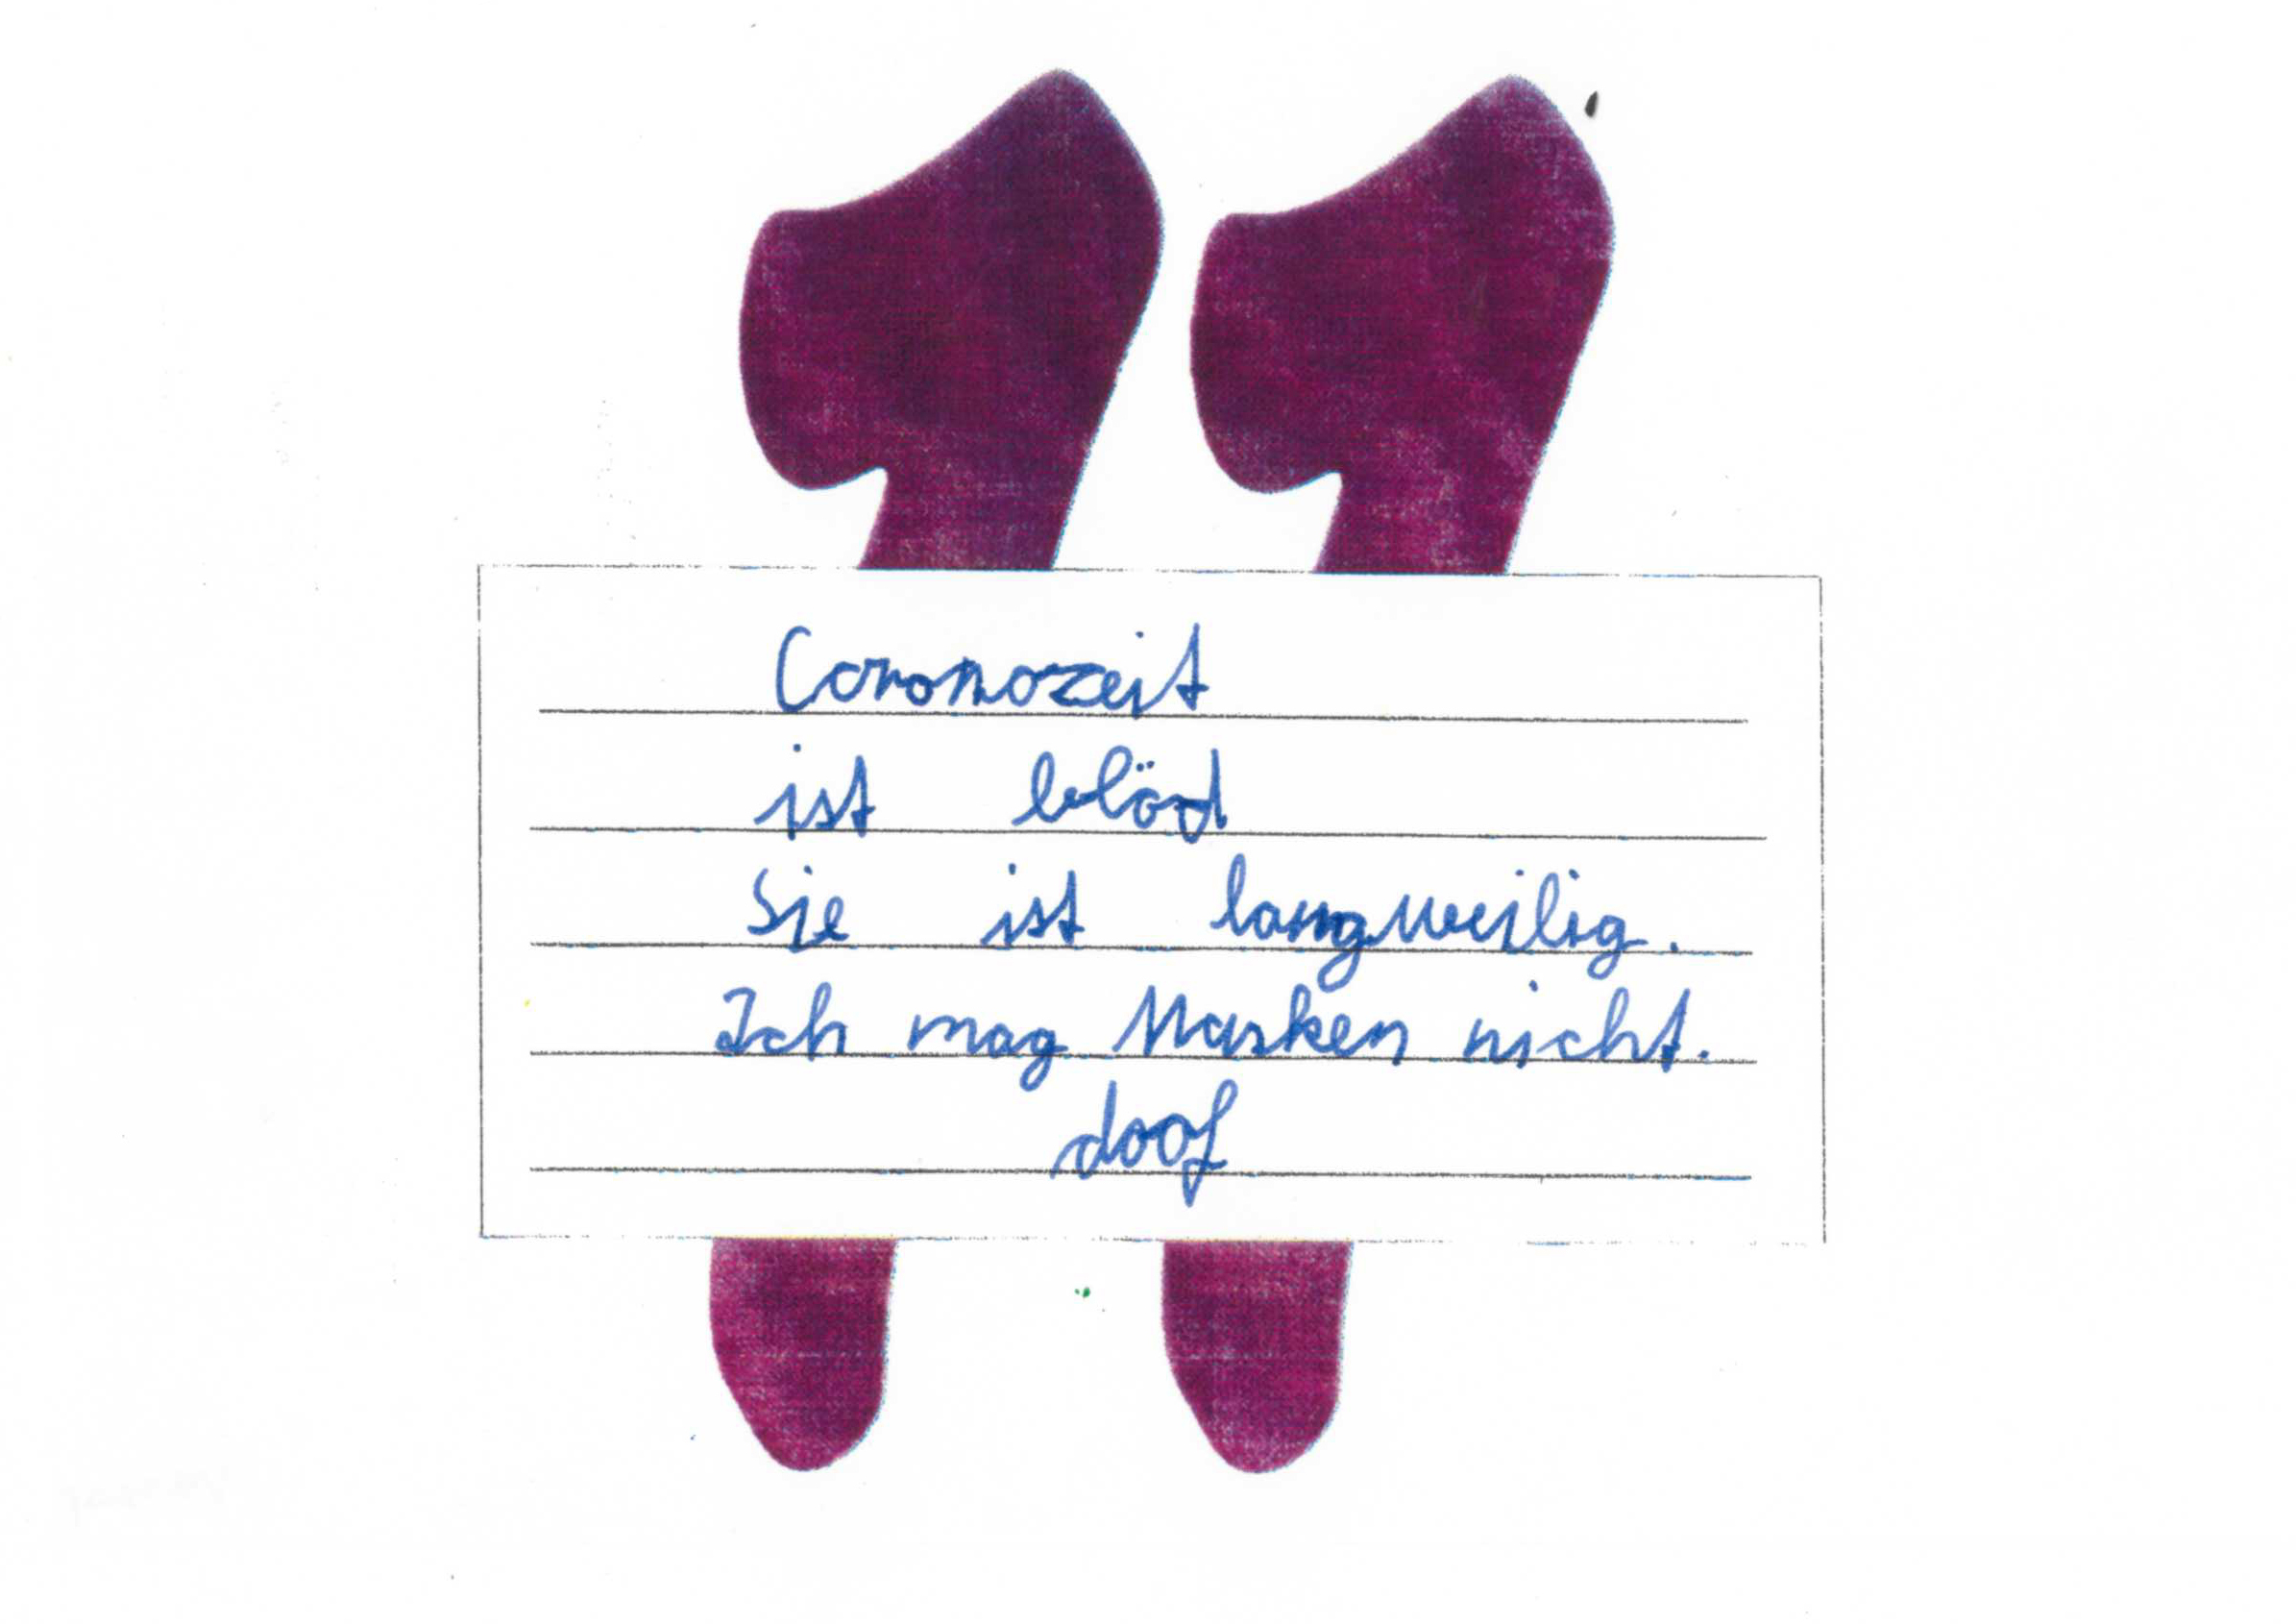 Coronazeit
ist blöd
Sie ist langweilig.
Ich mag Masken nicht.
doof